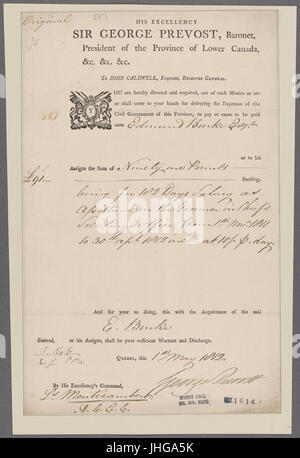 Original
HIS EXCELLENCY
SIR GEORGE PREVOST, Baronet,
President of the Province of Lower Canada,
&c. &c. &c.
To JOHN CALDWELL, Esquire, Receiver General.
YOU are hereby directed and required, out of such Monies as are
or shall come to your hands for defraying the Expences of the
Civil Government of this Province, to pay or cause to be paid
unto Edmund Burke Esqr.
or to his
£91 Assigns the Sum of Ninety one Pounds
Sterling,
being for 182 Days Salary as
Assistant in the Commander in Chief's
Office from 1st Novr. 1811
to 30th April 1812 at 10/ p. day
And for so doing, this with the Acquittance of the said
E. Burke
Entered, or his Assigns, shall be your sufficient Warrant and Discharge.
Quebec, this 1st May 1812.
George Prevost
By His Excellency's Command,
Ls. Montizambert
A. C. E. C.
alamy stock photo